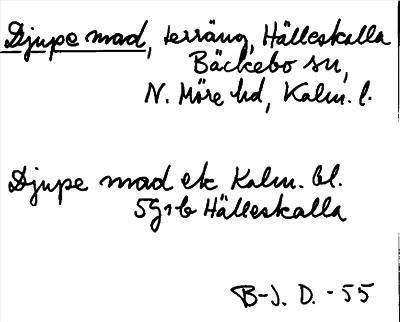 Djupe mad, terräng, Hälleskalla
Bäckebo sn,
N. Möre hd, Kalm. l.
Djupe mad ek Kalm. bl.
5g1b Hälleskalla
B-J. D. - 55